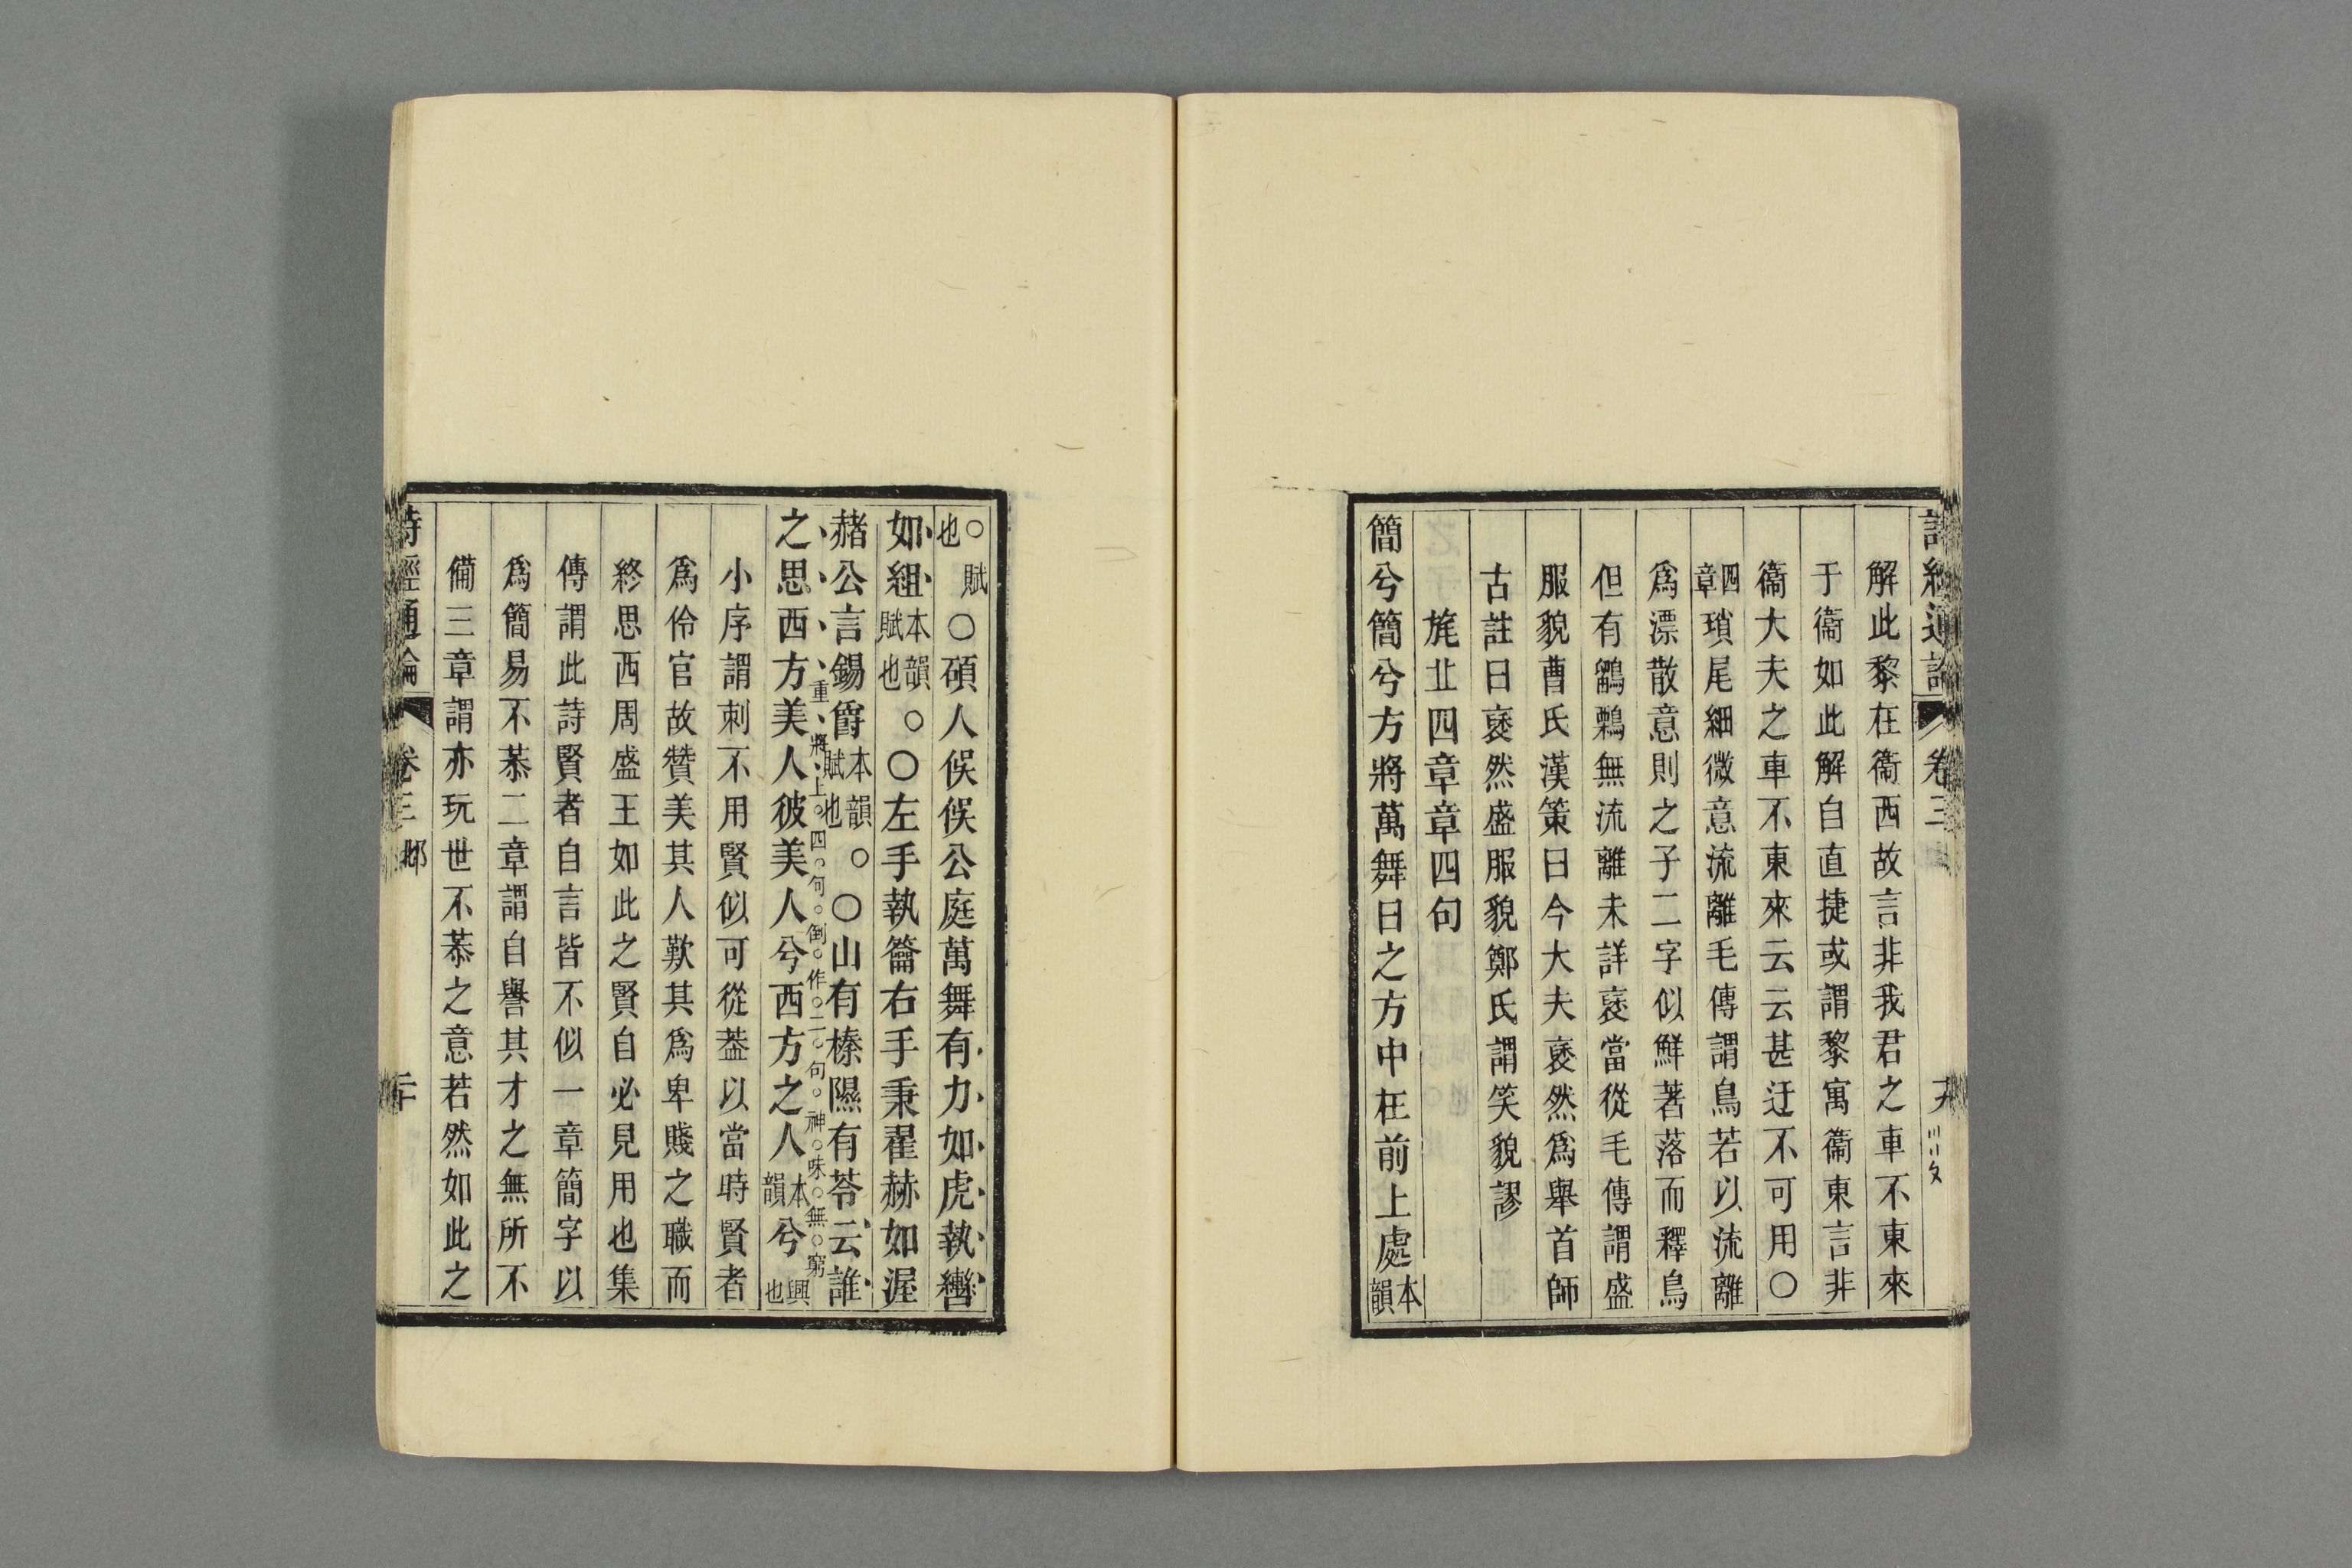 詩經通論 卷三
解此黎在衞西故言非我君之車不東來
于衞如此解自直捷或謂黎寓衞東言非
衞大夫之車不東來云云甚迂不可用○
四章瑣尾細微意流離毛傳謂鳥若以流離
爲漂散意則之子二字似鮮著落而釋鳥
但有鶹鷅無流離未詳褎當從毛傳謂盛
服貌曹氏漢策曰今大夫褎然爲舉首師
古註曰褎然盛服貌鄭氏謂笑貌謬
旄丘四章章四句
簡兮簡兮方將萬舞日之方中在前上處本韻
○賦也○碩人俁俁公庭萬舞有力如虎執轡
如組本韻賦也○○左手執籥右手秉翟赫如渥
赭公言錫爵本韻賦也○○山有榛隰有苓云誰
重將上四句倒作二句神味無窮
之思西方美人彼美人兮西方之人本韻兮興也
小序謂刺不用賢似可從葢以當時賢者
爲伶官故贊美其人歎其爲卑賤之職而
終思西周盛王如此之賢自必見用也集
傳謂此詩賢者自言皆不似一章簡字以
爲簡易不恭二章謂自譽其才之無所不
備三章謂亦玩世不恭之意若然如此之
詩經通論 卷三 邶 二十